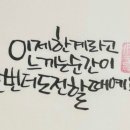 이제한계라고
느끼는순간이
한번더도전할때예요